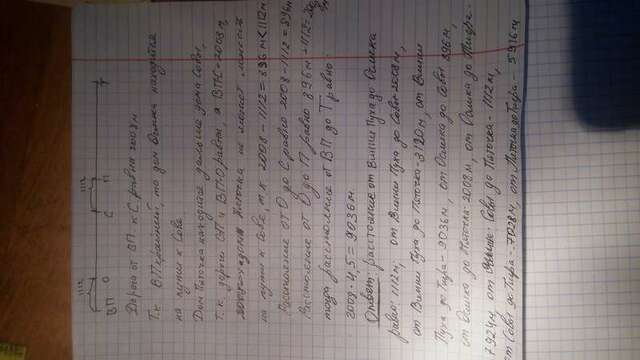 1112 1112
ВП О С П Т
Дорога от ВП к С равна 2008 м
Т.к. ВП крайний, то дом Ослика находится
на пути к Сове.
Дом Пятачка находится дальше дома Совы,
т.к. дороги СП и ВП-О равны, а ВПС=2008 м,
Пятачка не может
на пути к Сове, т.к 2008-1112=896 м<1112 м
Расстояние от О до С равно 2008-1112=896м
Расстояние от О до П равно 896м+1112=2008
тогда расстояние от ВП до Т равно:
2008·4,5=9036 м
Ответ: расстояние от Винни Пуха до Ослика
равно: 1112м, от Винни Пуха до Совы-2008м,
от Винни Пуха до Пятачка-3120м, от Винни
Пуха до Тигра-9036м, от Ослика до Совы 896м,
от Ослика до Пятачка-2008м, от Ослика до Тигра-
7924м, от Совы до Пятачка-1112м,
от Совы до Тигра-7028м, от Пятачка до Тигра-5916м